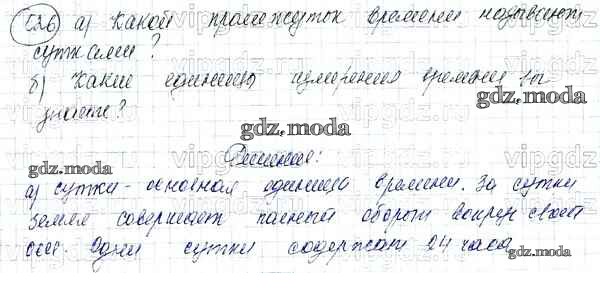 526) а) Какой промежуток времени называют
сутками?
б) Какие единицы измерения времени вы
знаете?
gdz.moda
gdz.moda
Решение:
gdz.moda
а) сутки - основная единица времени. За сутки
Земля совершает полный оборот вокруг своей
оси. Одни сутки содержат 24 часа
gdz.moda